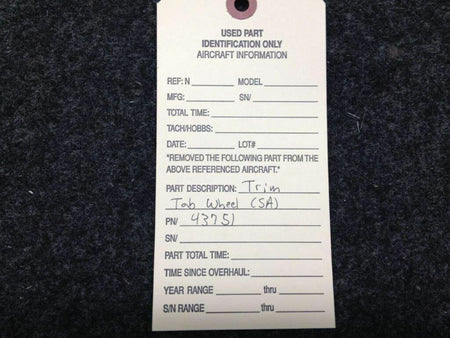 USED PART
IDENTIFICATION ONLY
AIRCRAFT INFORMATION
REF: N ________ MODEL __________
MFG: ________ SN/ ____________
TOTAL TIME: ____________________
TACH/HOBBS: ____________________
DATE: ________ LOT# ____________
"REMOVED THE FOLLOWING PART FROM THE
ABOVE REFERENCED AIRCRAFT."
PART DESCRIPTION: Trim
Tab Wheel (SA)
PN/ 43751
SN/ ____________________________
PART TOTAL TIME: _______________
TIME SINCE OVERHAUL: ___________
YEAR RANGE ________ thru ________
S/N RANGE ________ thru ________